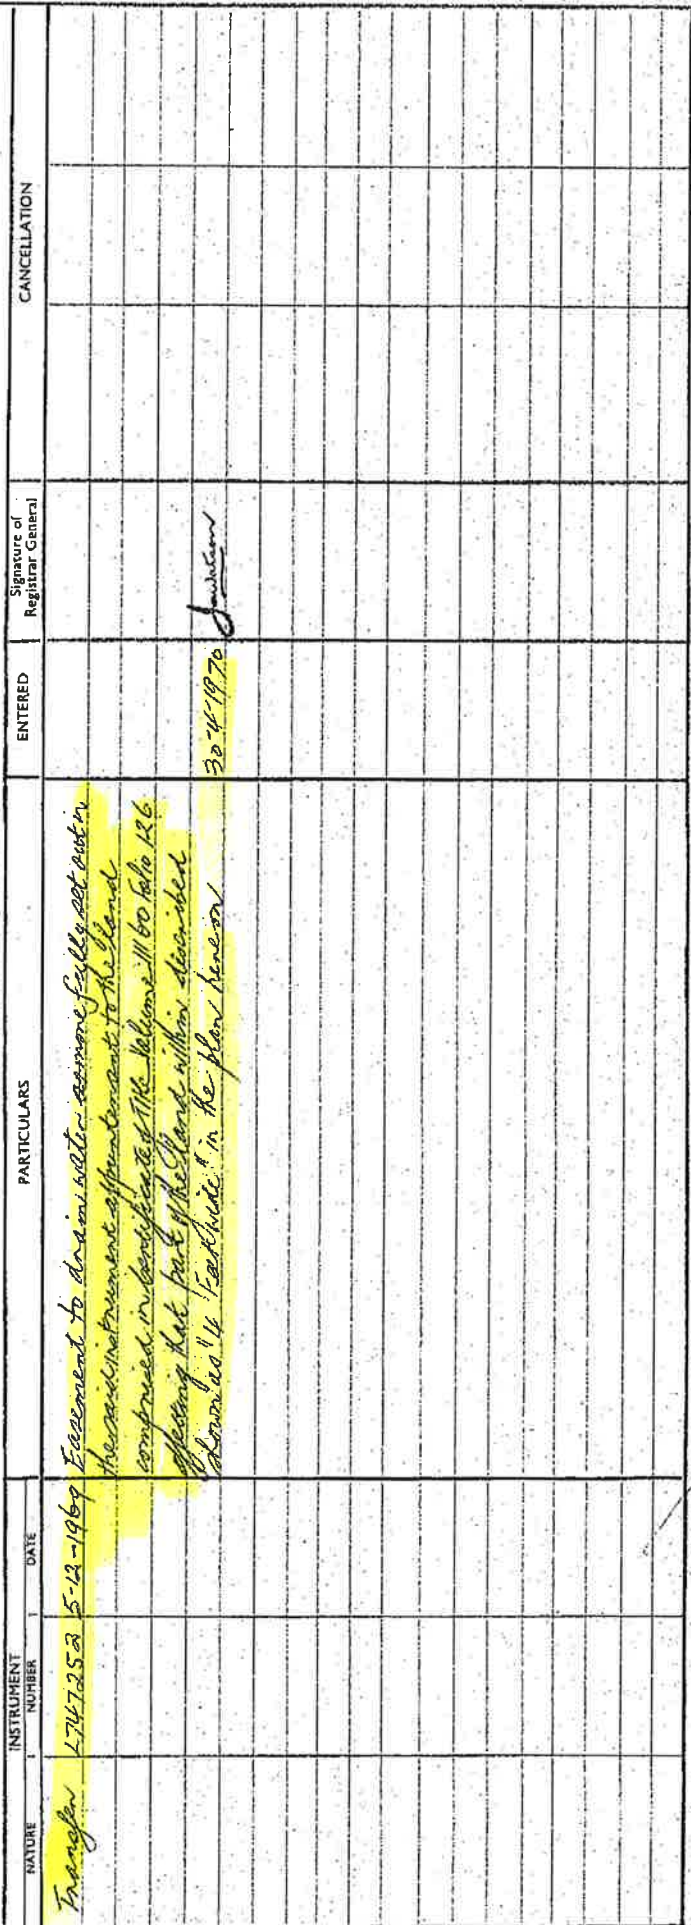 INSTRUMENT
NATURE NUMBER DATE PARTICULARS ENTERED Signature of Registrar General CANCELLATION
Transfer L747252 5-12-1969 Easement to drain water as more fully set out in
the said instrument appurtenant to the land
comprised in Certificate of Title Volume 11160 Folio 126
affecting that part of the land within described
shown as "4 Feet wide" in the plan hereon 30-4-1970